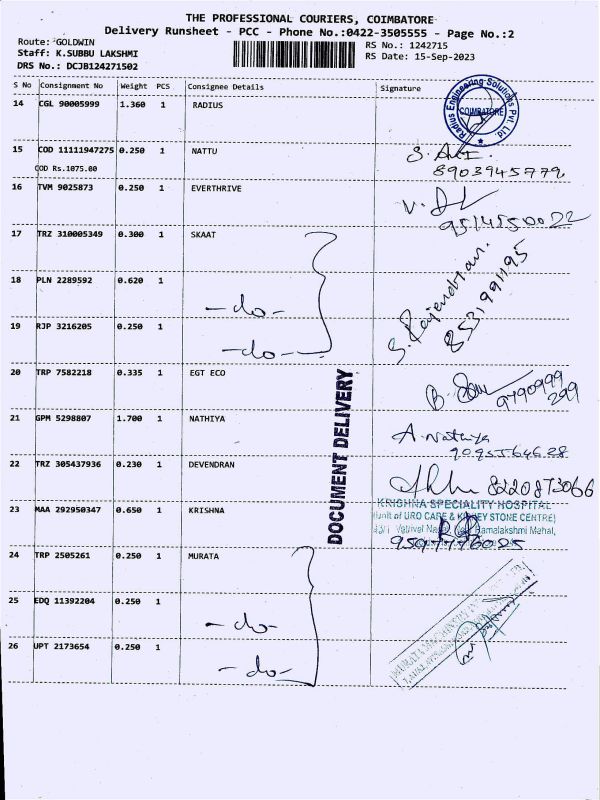 THE PROFESSIONAL COURIERS, COIMBATORE
Delivery Runsheet - PCC - Phone No.:0422-3505555 - Page No.:2
Route: GOLDWIN
Staff: K.SUBBU LAKSHMI
DRS No.: DCJB124271502
RS No.: 1242715
RS Date: 15-Sep-2023
S No Consignment No Weight PCS Consignee Details Signature
14 CGL 90005999 1.360 1 RADIUS
Radius Engineering Solutions Pvt. Ltd.
COIMBATORE
15 COD 11111947275 0.250 1 NATTU
COD Rs.1075.00
8903945779
16 TVM 9025873 0.250 1 EVERTHRIVE
9514550022
17 TRZ 310005349 0.300 1 SKAAT
18 PLN 2289592 0.620 1 -do-
19 RJP 3216205 0.250 1 -do-
S. Rajendhran.
8531991195
20 TRP 7582218 0.335 1 EGT ECO
9790999
299
21 GPM 5298807 1.700 1 NATHIYA
A. Nathiya
22 TRZ 305437936 0.230 1 DEVENDRAN
8220873066
DOCUMENT DELIVERY
23 MAA 292950347 0.650 1 KRISHNA
KRISHNA SPECIALITY HOSPITAL
(Unit of URO CARE & KIDNEY STONE CENTRE)
Ramalakshmi Mahal,
24 TRP 2505261 0.250 1 MURATA
25 EDQ 11392204 0.250 1 -do-
26 UPT 2173654 0.250 1 -do-